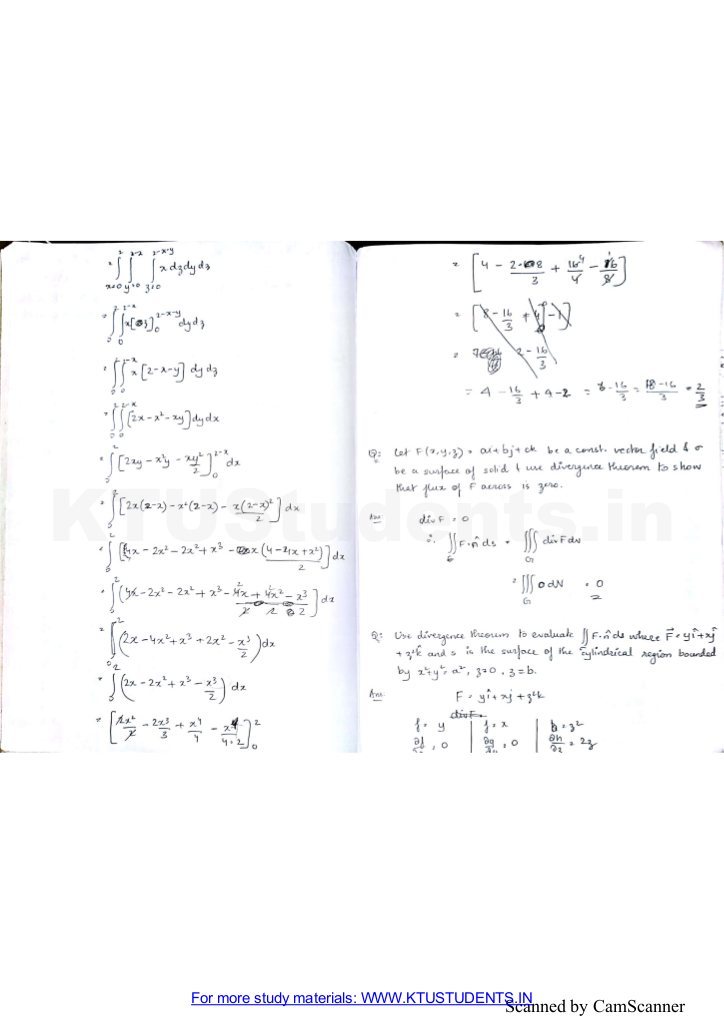 = ∫∫∫ x dz dy dz
x=0 y=0 z=0
= ∫∫ x[z]₀^{2-x-y} dy dz
= ∫₀²∫₀^{2-x} x[2-x-y] dy dz
= ∫₀²∫₀^{2-x} [2x - x² - xy] dy dx
= ∫₀² [2xy - x²y - xy²/2]₀^{2-x} dx
= ∫₀² [2x(2-x) - x²(2-x) - x(2-x)²/2] dx
= ∫₀² [4x - 2x² - 2x² + x³ - x(4-4x+x²)/2] dx
= ∫₀² (4x - 2x² - 2x² + x³ - 4x + 4x² - x³/2] dx
= ∫₀² (2x - 4x² + x³ + 2x² - x³/2) dx
= ∫₀² (2x - 2x² + x³ - x³/2) dx
= [2x²/2 - 2x³/3 + x⁴/4 - x⁴/4·2]₀²
= [4 - 2·8/3 + 16/4 - 16/8]
= 4 - 16/3 + 4 - 2 = 6 - 16/3 = 18-16/3 = 2/3
Q: Let F(x,y,z) = ai + bj + ck be a const. vector field & σ
be a surface of solid & use divergence theorem to show
that flux of F across is zero.
Ans: div F = 0
∴ ∬ F·n̂ ds = ∭ div F dv
G
= ∭ 0 dv = 0
G
Q: Use divergence theorem to evaluate ∬ F·n̂ ds where F⃗ = yî + xĵ
+ z²k̂ and s is the surface of the cylindrical region bounded
by x²+y² = a², z=0, z=b.
Ans: F = yî + xĵ + z²k
div F =
f = y | g = x | h = z²
∂f = 0 | ∂g = 0 | ∂h/∂z = 2z
KTUStudents.in
For more study materials: WWW.KTUSTUDENTS.IN
Scanned by CamScanner